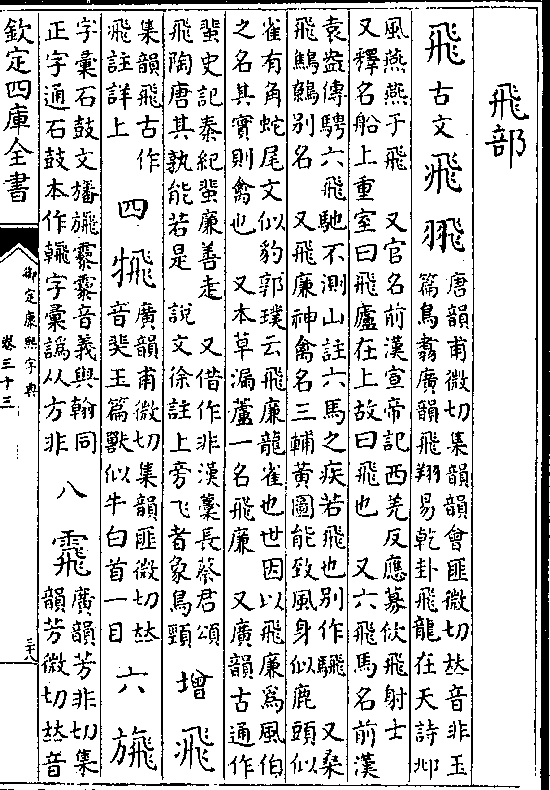 飛部
飛古文飛𦐸唐韻甫微切集韻韻會匪微切𠀤音非玉
篇鳥翥廣韻飛翔易乾卦飛龍在天詩邶
風燕燕于飛 又官名前漢宣帝記西羌反應募佽飛射士
又釋名船上重室曰飛廬在上故曰飛也 又六飛馬名前漢
袁盎傳騁六飛馳不測山註六馬之疾若飛也別作騛 又桑
飛鷦鷯別名 又飛廉神禽名三輔黃圖能致風身似鹿頭似
雀有角蛇尾文似豹郭璞云飛廉龍雀也世因以飛廉爲風伯
之名其實則禽也 又本草漏蘆一名飛廉 又廣韻古通作
蜚史記秦紀蜚廉善走 又借作非漢藁長蔡君頌
飛陶唐其孰能若是 說文徐註上旁飞者象鳥頸
增飛
集韻飛古作
飛註詳上
四
䬠廣韻甫微切集韻匪微切𠀤
音斐玉篇獸似牛白首一目
六
字彙石鼓文
音義與翰同
正字通石鼓本作
字彙譌从方非
八
廣韻芳非切集
韻芳微切𠀤音
欽定四庫全書
御定康熙字典
卷三十三
三十八